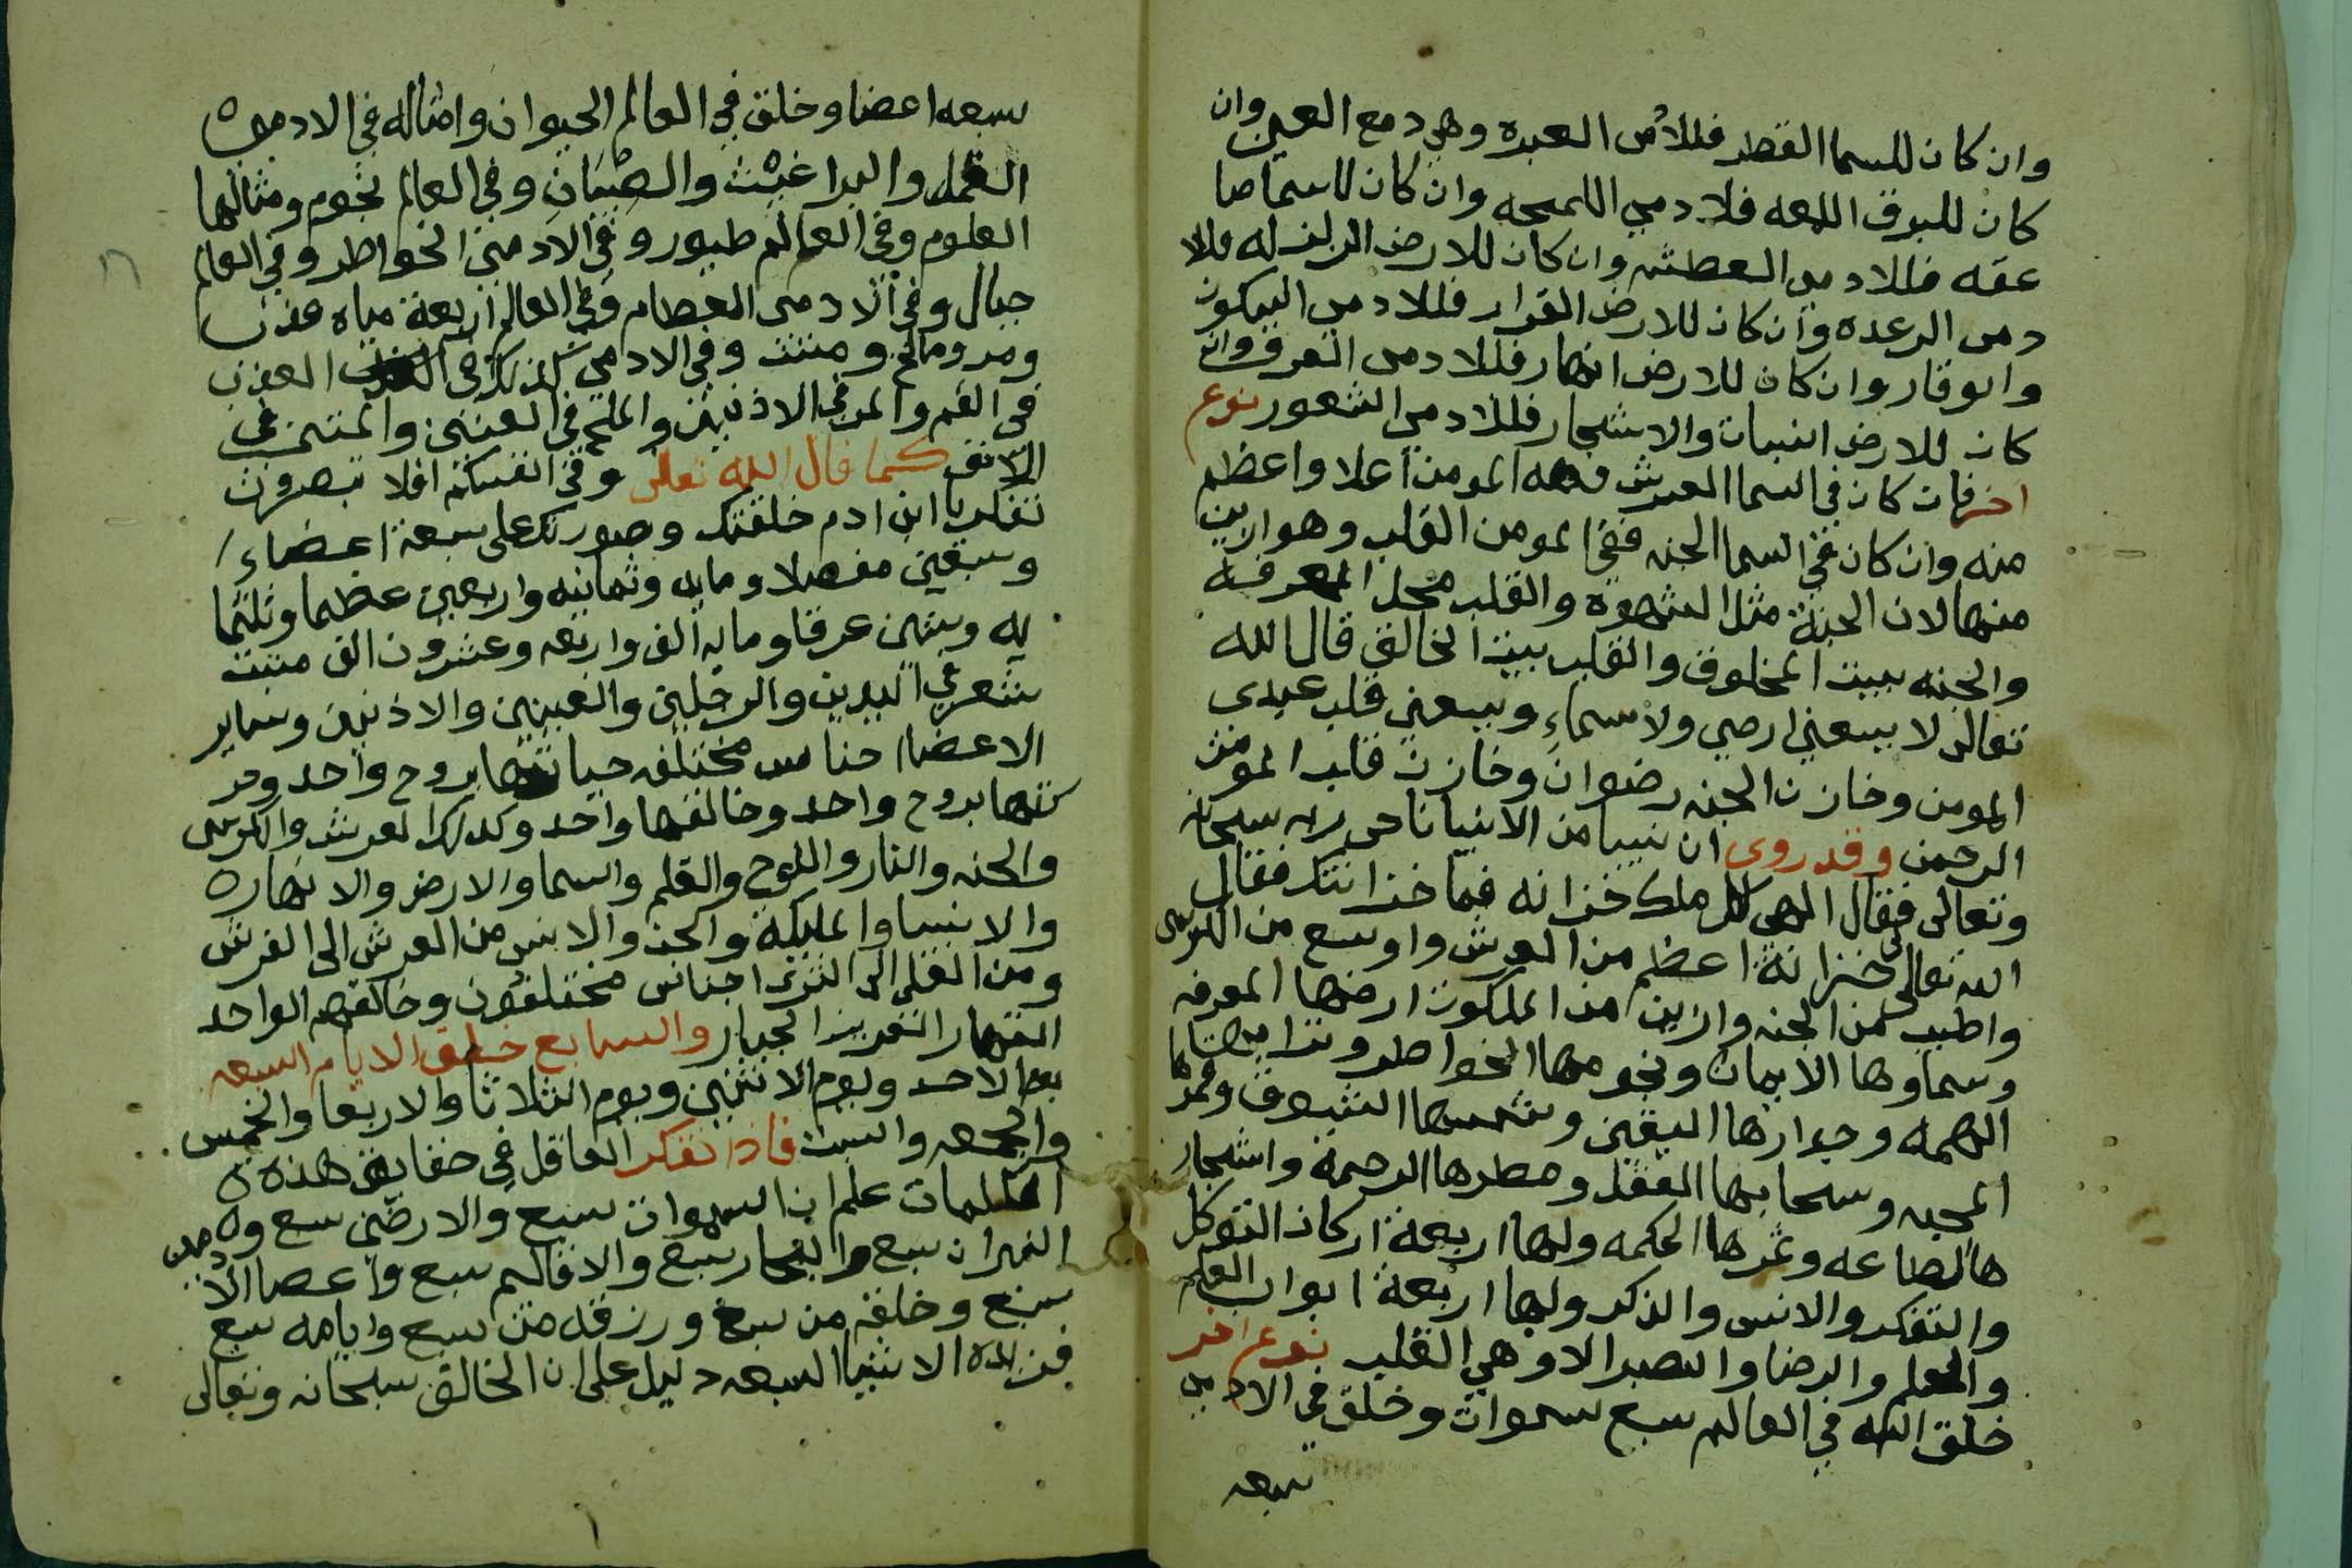 وان كان للسما القطر فللادمي العبره وهي دمع العين وان
كان للبرق اللمعه فلادمي اللمحه وان كان للسما صا
عقه فللادمي العطشه وان كان للارض الزلزله فللا
دمى الرعده وان كان للارض القرار فللادمي السكون
والوقار وان كان للارض انهار فللادمى العروق وان
كان للارض النبات والاشجار فللادمي الشعور نوع
اخر فان كان في السما العرش فهمه المومن اعلا واعظم
منه وان كان في السما الجنه ففي المومن القلب وهو ازين
منها لان الجنة مثل الشهوه والقلب محل المعرفة
والجنه بيت المخلوق والقلب بيت الخالق قال الله
تعالى لا يسعني ارضي ولا سماءي ويسعني قلب عبدى
المومن وخازن الجنه رضوان وخازن قلب المومن
الرحمن وقد روى ان نبيا من الانبيا ناجى ربه سبحانه
وتعالى فقال الهى لكل ملك خزانه فما خزانتك فقال
الله تعالى لى خزانة اعظم من العرش واوسع من الكرسى
واطيب من الجنه وازين من الملكوت ارضها المعرفه
وسماوها الايمان ونجومها الخواطر وترابها
الهمه وجدارها اليقين وشمسها الشوق وقمرها
المحبه وسحابها العقل ومطرها الرحمة واشجار
ها الطاعه وثمرها الحكمه ولها اربعة اركان التوكل
والتفكر والانس والذكر ولها اربعة ابواب العلم
والحلم والرضا والصبر الا وهي القلب نوع اخر
خلق الله في العالم سبع سموات وخلق في الادمي
سبعه
سبعه اعضا وخلق في العالم الحيوان وامثاله في الادمى
القمل والبراغيث والصئبان وفي العالم نجوم ومثالها
العلوم وفي العالم طيور وفي الادمي الخواطر وفي العالم
جبال وفي الادمى العظام وفي العالم اربعة مياه عذب
ومر ومالح ومنتن وفي الادمي كذلك العذب
في الفم والمر في الاذنين والملح في العينين والمنتن في
الانف كما قال الله تعالى وفي انفسكم افلا تبصرون
تفكر يا ابن ادم خلقتك وصورتك على سبعة اعضاء
وسبعين مفصلا ومايه وثمانيه واربعين عظما وثلثما
يه وستين عرقا ومايه الف واربعه وعشرون الف منبت
شعر في اليدين والرجلين والعينين والاذنين وساير
الاعضا اجناس مختلفه حياتها بروح واحد وحر
كتها بروح واحد وخالقها واحد وكذلك العرش والكرسى
والجنه والنار واللوح والقلم والسما والارض والانهار
والانبيا والمليكة والجن والانس من العرش الى الفرش
ومن العلى الى الثرى اجناس مختلفون وخالقهم الواحد
القهار العزيز الجبار والسابع خلق الايام السبعه
يوم الاحد ويوم الاثنين ويوم الثلاثا والاربعا والخميس
والجمعه والسبت فاذا تفكر العاقل في حقايق هذه
الكلمات علم ان السموات سبع والارضين سبع و
النيران سبع والبحار سبع والاقاليم سبع واعضا الادمي
سبع وخلقه من سبع ورزقه من سبع وايامه سبع
فهذه الاشيا السبعه دليل على ان الخالق سبحانه وتعالى